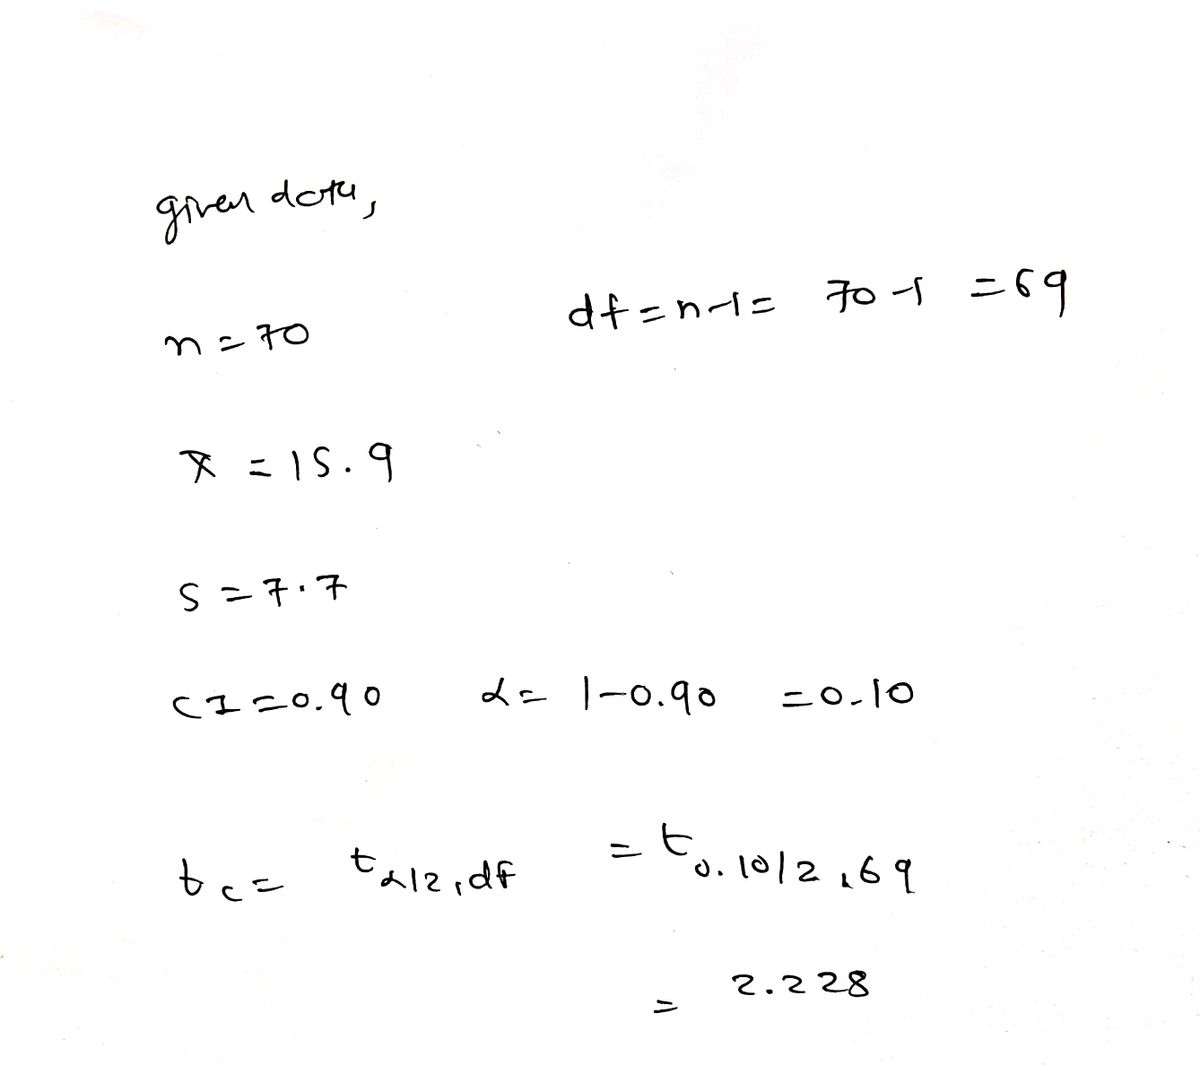 given data,
n = 70
df = n-1 = 70-1 = 69
x̄ = 15.9
s = 7.7
CI = 0.90 α = 1-0.90 = 0.10
tc = tα/2, df = t0.10/2, 69
= 2.228